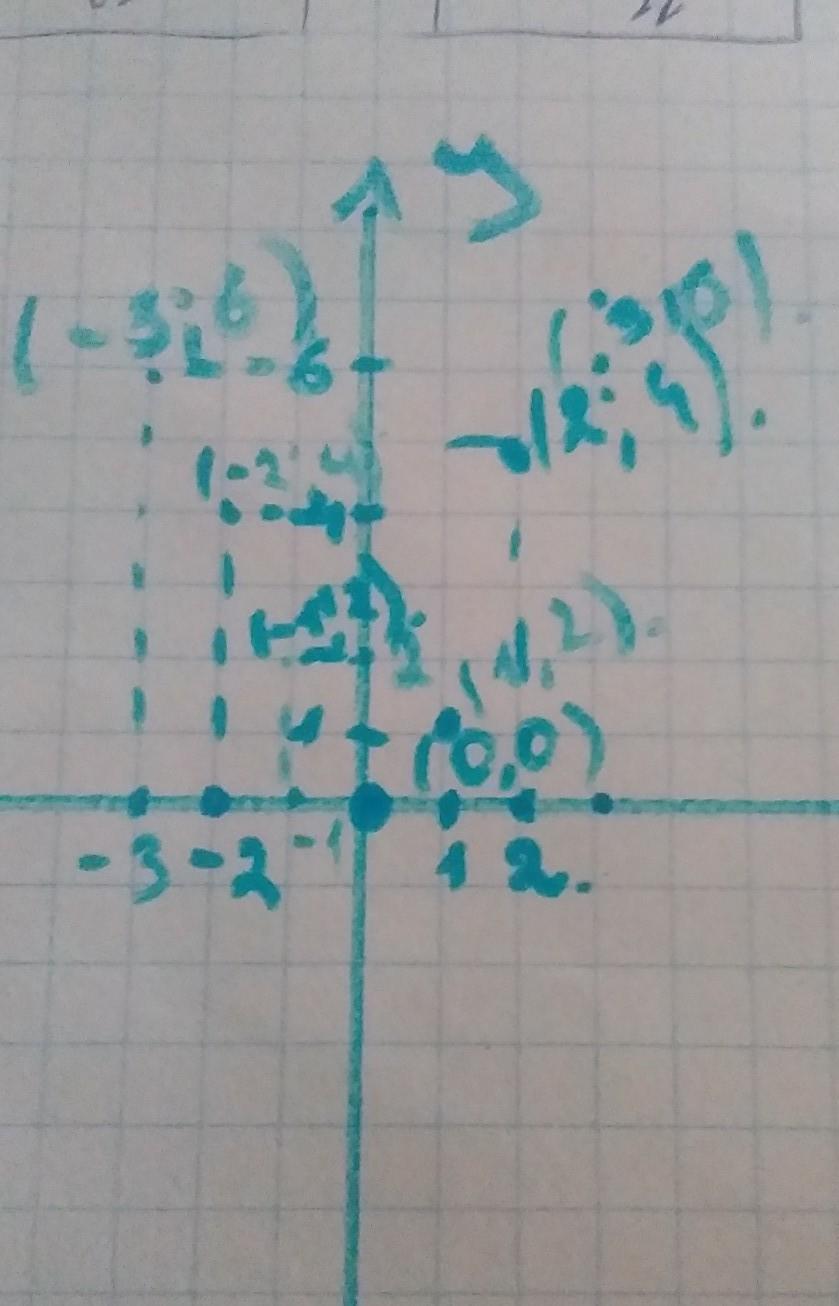 y
(-3; 6)
6
(2; 4).
(-2; 4)
4
(1, 2).
1
(0,0)
-3 -2 -1 1 2.